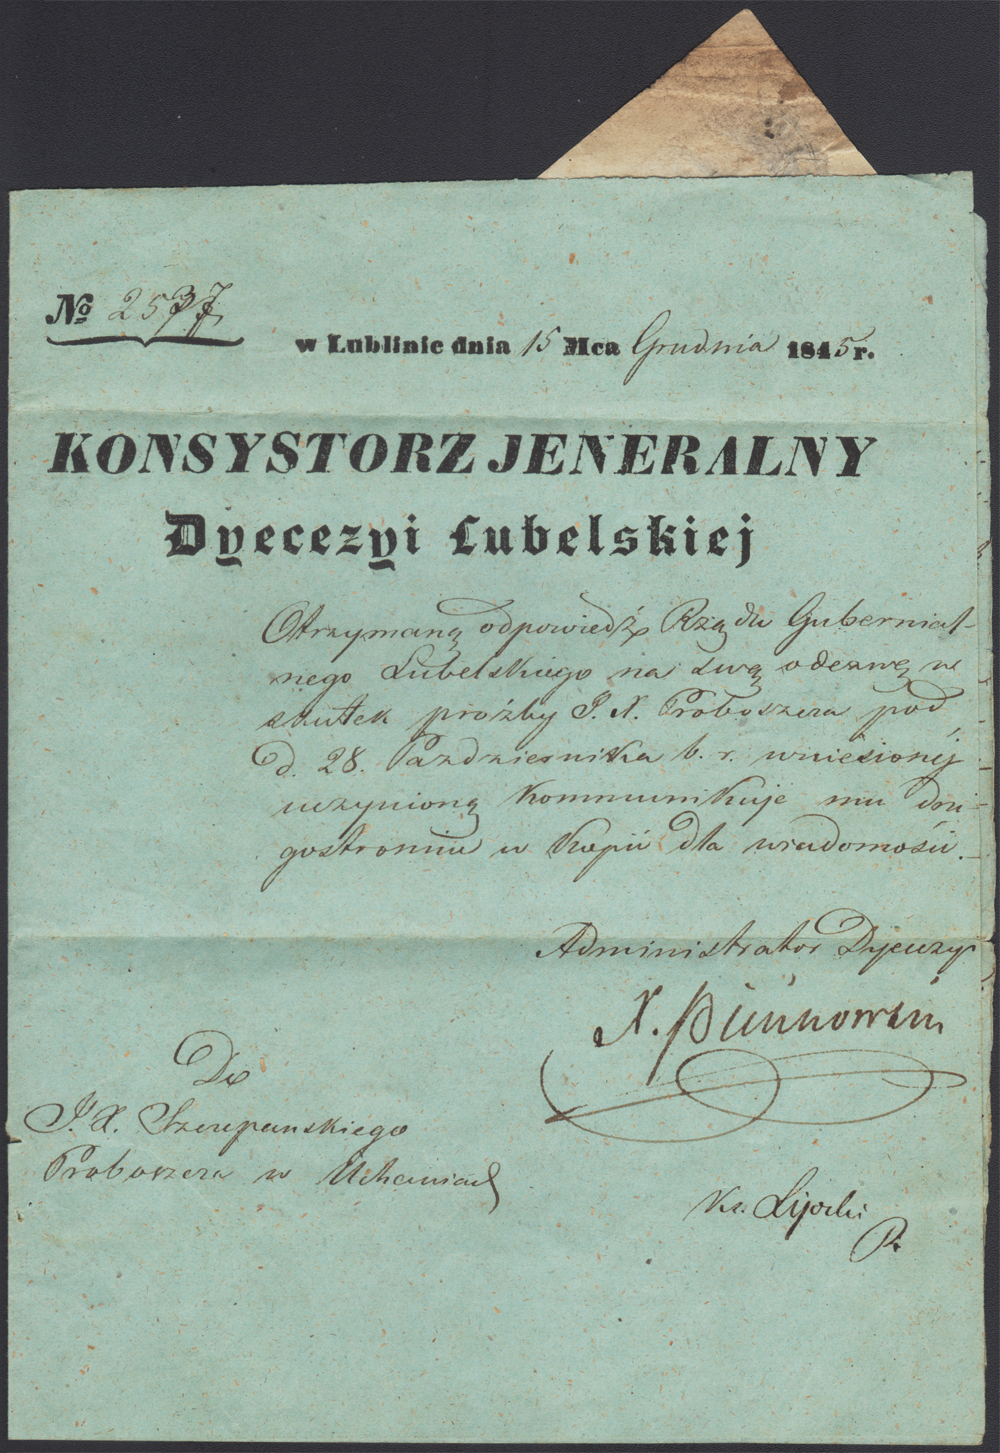 № 2537
w Lublinie dnia 15 Mca Grudnia 1845 r.
KONSYSTORZ JENERALNY
Dyecezyi Lubelskiej
Otrzymaną odpowiedź Rządu Gubernial-
nego Lubelskiego na swą odezwę w
skutek prośby J. X. Proboszcza pod
d. 28. Pazdziernika b. r. wniesionéj
uczynioną kommunikuje mu dru-
gostronnie w kopii dla wiadomości.
Administrator Dyecezyi
X.
Do
J. X. Szczepanskiego
Proboszcza w Uchaniach